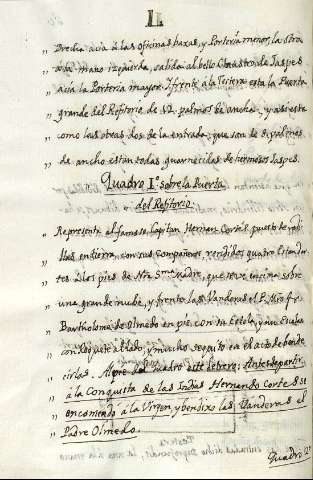 II.
" Drecha acia à las oficinas baxas, y Portería menor, la otra
" à la mano izquierda, salida al bello Claustro de Jaspes
" acia la Portería mayor. Yfrente à la Testera esta la Puerta
" grande del Refitorio de 12 palmos de ancho, y asi esta
" como las otras dos de la entrada, que son de palmos
" de ancho estàn todas guarnecidas de hermosos Jaspes.
Quadro I.º sobre la Puerta
del Refitorio.
" Representa al famoso Capitan Hernan Cortès, puesto de rodi-
" llas en tierra, con sus compañeros, rendidos quatro Estandar-
" tes à los pies de Nra Sma Madre, que se vè encima sobre
" una grande nube, y frente las Vanderas el P. Mro fr.
" Bartholome de Olmedo en pie, con su Estola, y un
" con Roquete al lado, y mucho seguito en el acto de bende
" cirlas. Al pie del quadro este letrero: Antes de partir
" à la Conquista de las Indias Hernando Cortès se
" encomendò à la Virgen, y bendixo las Vanderas el
" Padre Olmedo
Quadro 2º